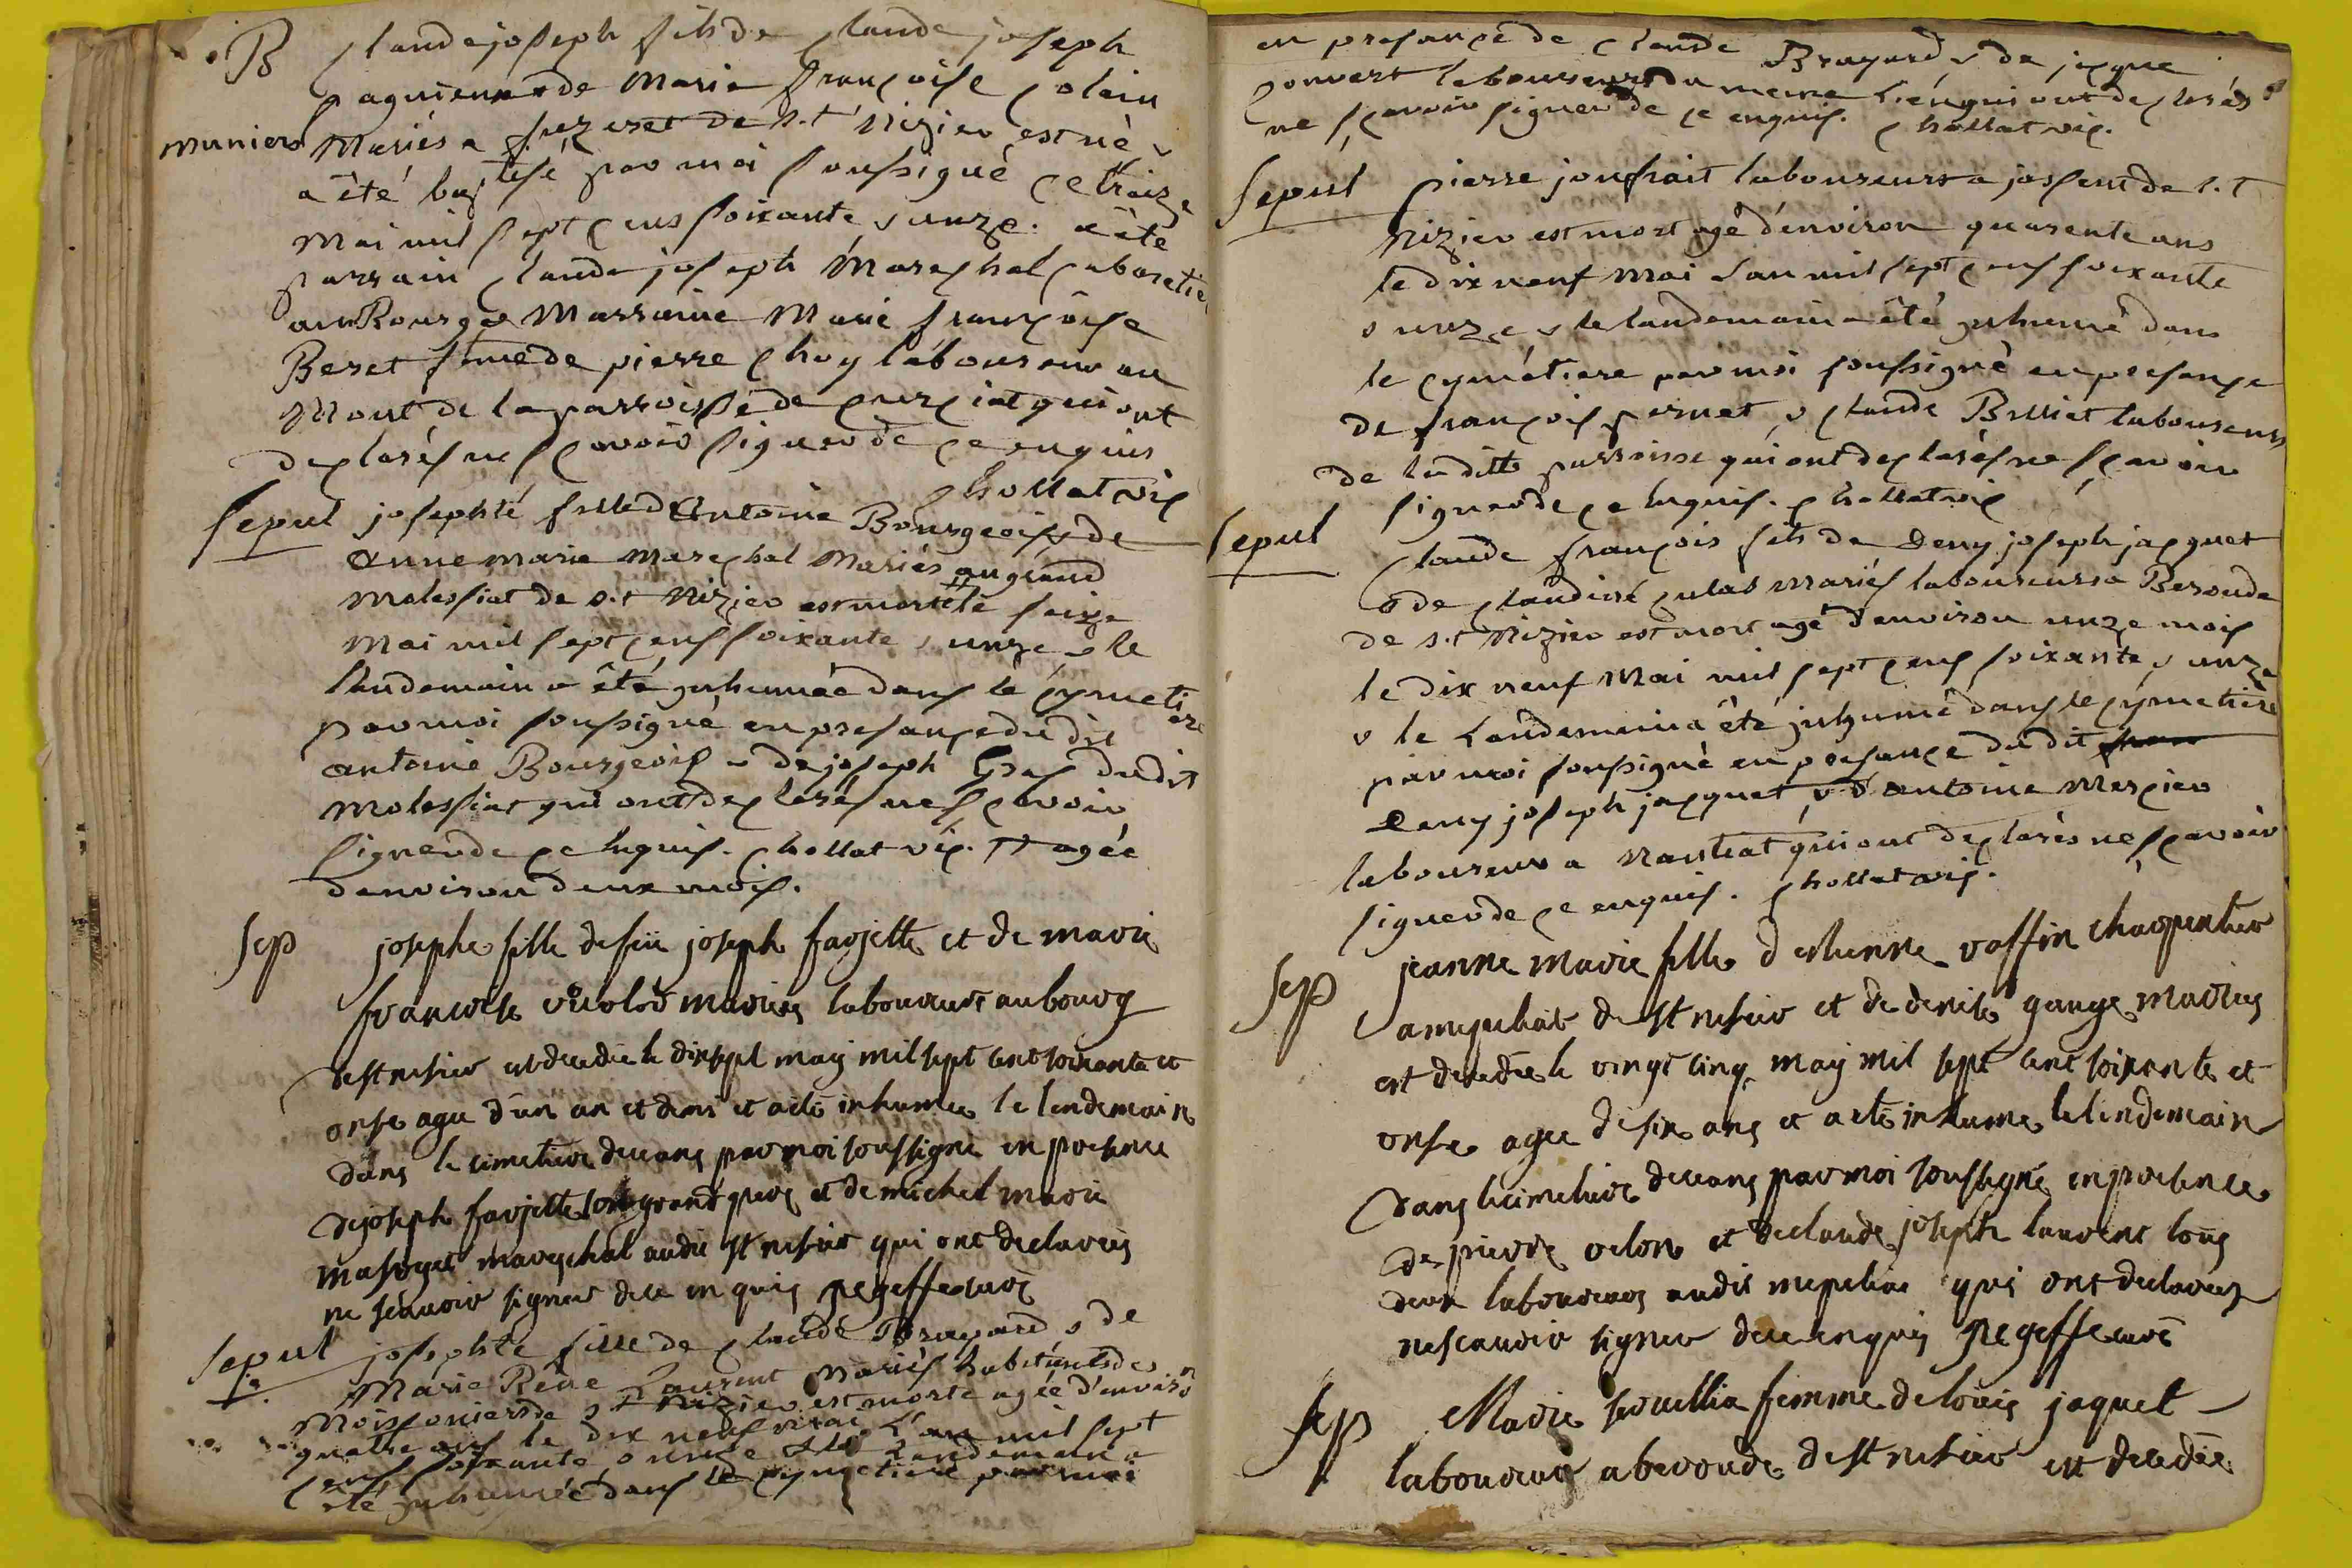 B Claude joseph fils de Claude joseph
paquieur de Marie françoise Colain
muniers Mariés a frezeret de s.t Nizier est né &
a été baptesé par moi soussigné ce traize
Mai mil sept cens soixante & unze. a été
parrain Claude joseph Marechal cabaretier
au Bourg & Marraine Marie françoise
Beret feme de pierre Chuy laboureur au
Mont de la parroisse de Curciat qui ont
declarés ne sçavoir signer de ce enquis
Chollat vic
sepul josephté fille d'Antoine Bourgeois & de
Anne marie Marechal Mariés au grand
Malessiat de s.t Nizier est morte le seize
Mai mil sept cens soixante & unze & le
landemain a été inhumée dans le cymetiere
par moi soussigné en presance du dit
antoine Bourgeois & de joseph Gras du dit
Molessiat qui ont declarés ne sçavoir
signer de ce enquis. Chollat vic. # agée
denviron deux mois.
sep josephe fille de feü joseph farjette et de marie
francoise maries laboureurs au bourg
de st nesier est decedée le dixsept may mil sept cent soixante et
onse agee d'un an et demi et a eté inhumee le lendemain
dans le cimetiere deceans par moi soussigne en presence
de joseph farjette son grand pere et de michel marie
masoyer mareschal audit st nesier qui ont declareis
ne scauoir signer de ce enquis pegeffe curé
sepul josephte fille de Claude Brayard & de
Marie Rene Laurent Mariés habitants de
Moissoniers de s.t Nizier est morte agée d'environ
quatre ans le dix neuf mai L'an mil sept
cens soixante & unze & le Landemain a
été inhumée dans le cymetiere par moi
en presance de Claude Brayard & de jacque
Convert laboureurs du meme Lieu qui ont declarés
ne sçavoir signer de ce enquis. Chollat vic.
sepul pierre joussrait laboureurs a josserand de s.t
Nizier est mort agé d'environ quarente ans
le dix neuf Mai L'an mil sept cens soixante
& unze & le landemain a été inhumé dans
le cymétiere par moi soussigné en presance
de françois pernet & Claude Brilliet laboureurs
de laditte parroisse qui ont declarés ne sçavoir
signer de ce enquis. Chollat vic
sepul Claude françois fils de Deny joseph jacquet
& de Claudine Culas Mariés laboureurs a Beroude
de s.t Nizier est mort agé d'environ unze mois
le dix neuf Mai mil sept cens soixante & unze
& le Landemain a été inhumé dans le cymetiere
par moi soussigné en presance du dit
Deny joseph jacquet & d'antoine Mercier
laboureur a Nantiat qui ont declarés ne sçavoir
signer de ce enquis. Chollat vic.
sep jeanne marie fille d'estienne voffin charpentier
de st nesier et de denise gange maries
est decedée le vingt cinq may mil sept cent soixante et
onse agee de six ans et a eté inhume le lendemain
dans le cimetiere deceans par moi soussigné en presence
de pierre velon et de claude joseph laurent tous
deux laboureurs audit mepeliat qui ont declareez
ne scauoir signer de ce enquis pegeffe curé
sep Marie femme de louis jaquet
laboureur a beroude de st nesier est decedée